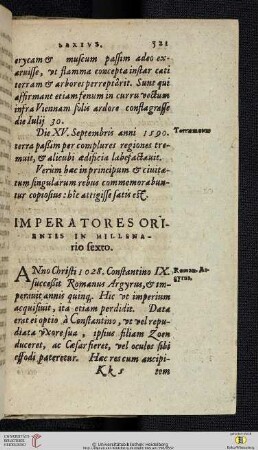 SEXTVS. 521
erycam & muscum passim adeo ex-
aruisse, vt flamma concepta instar cati
terram & arbores perreptârit. Sunt qui
affirmant etiam fenum in curru vectum
infra Viennam solis ardore conflagrasse
die Iulij 30.
Die XV. Septembris anni 1590. Terræmotus
terra passim per complures regiones tre-
muit, & alicubi ædificia labefactauit.
Verùm hæc in principum & ciuita-
tum singularum rebus commemorabun-
tur copiosius: hîc attigisse satis est.
IMPERATORES ORI-
ENTIS IN MILLENA-
rio sexto.
ANno Christi 1028. Constantino IX. Roman. Ar-
successit Romanus Argyrus, & im- gyrus.
perauit annis quinq. Hic vt imperium
acquisiuit, ita etiam perdidit. Data
erat ei optio à Constantino, vt vel repu-
diata vxore sua, ipsius filiam Zoen
duceret, ac Cæsar fieret, vel oculos sibi
effodi pateretur. Hac res cum ancipi-
Kk 5 tem